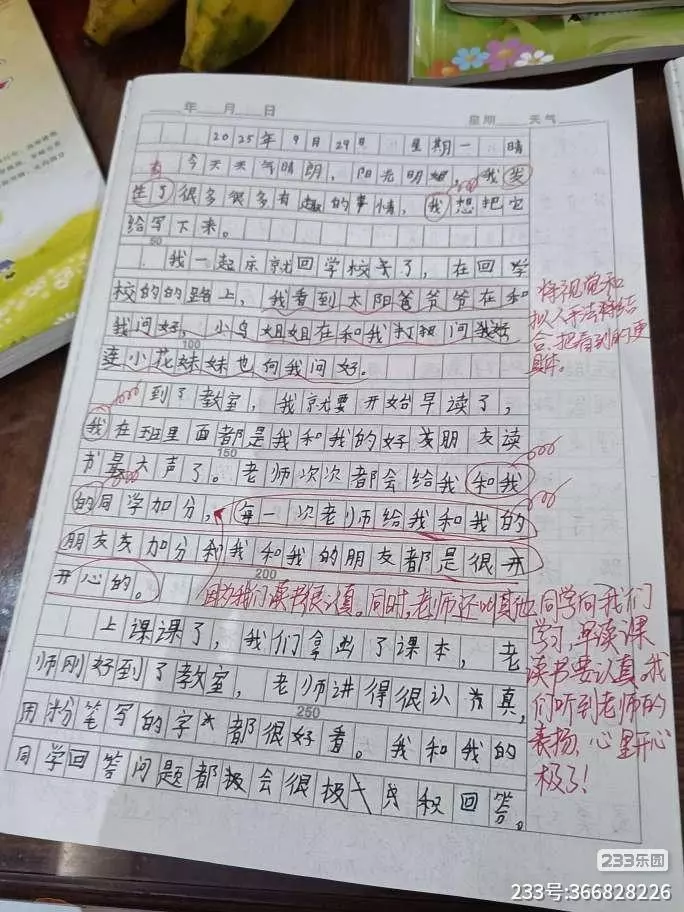 年 月 日
星期 天气
2025年9月29日 星期一 晴
今天天气晴朗，阳光明媚，我发
生了很多很多有趣的事情，我想把它
给写下来。
50
我一起床就回学校去了，在回学
校的的路上，我看到太阳爸爷爷在和
我问好，小鸟姐姐在和我打招问我好
100
连小花妹妹也向我问好。
将视觉和
拟人手法相结
合，把看到的更
具体。
到了教室，我就要开始早读了，
我在班里面都是我和我的好友朋友读
150
书最大声了。老师次次都会给我和我
的同学加分，每一次老师给我和我的
朋友友加分我和我的朋友都是很开
开心的。
200
因为我们读书很认真。同时，老师还叫其他同学向我们
学习，早读课
读书要认真。我
们听到老师的
表扬，心里开心
极了！
上课课了，我们拿出了课本，老
师刚好到了教室，老师讲得很认真，
250
用粉笔写的字都很好看。我和我的
同学回答问题都会很积回答。
233乐园
233号:366828226